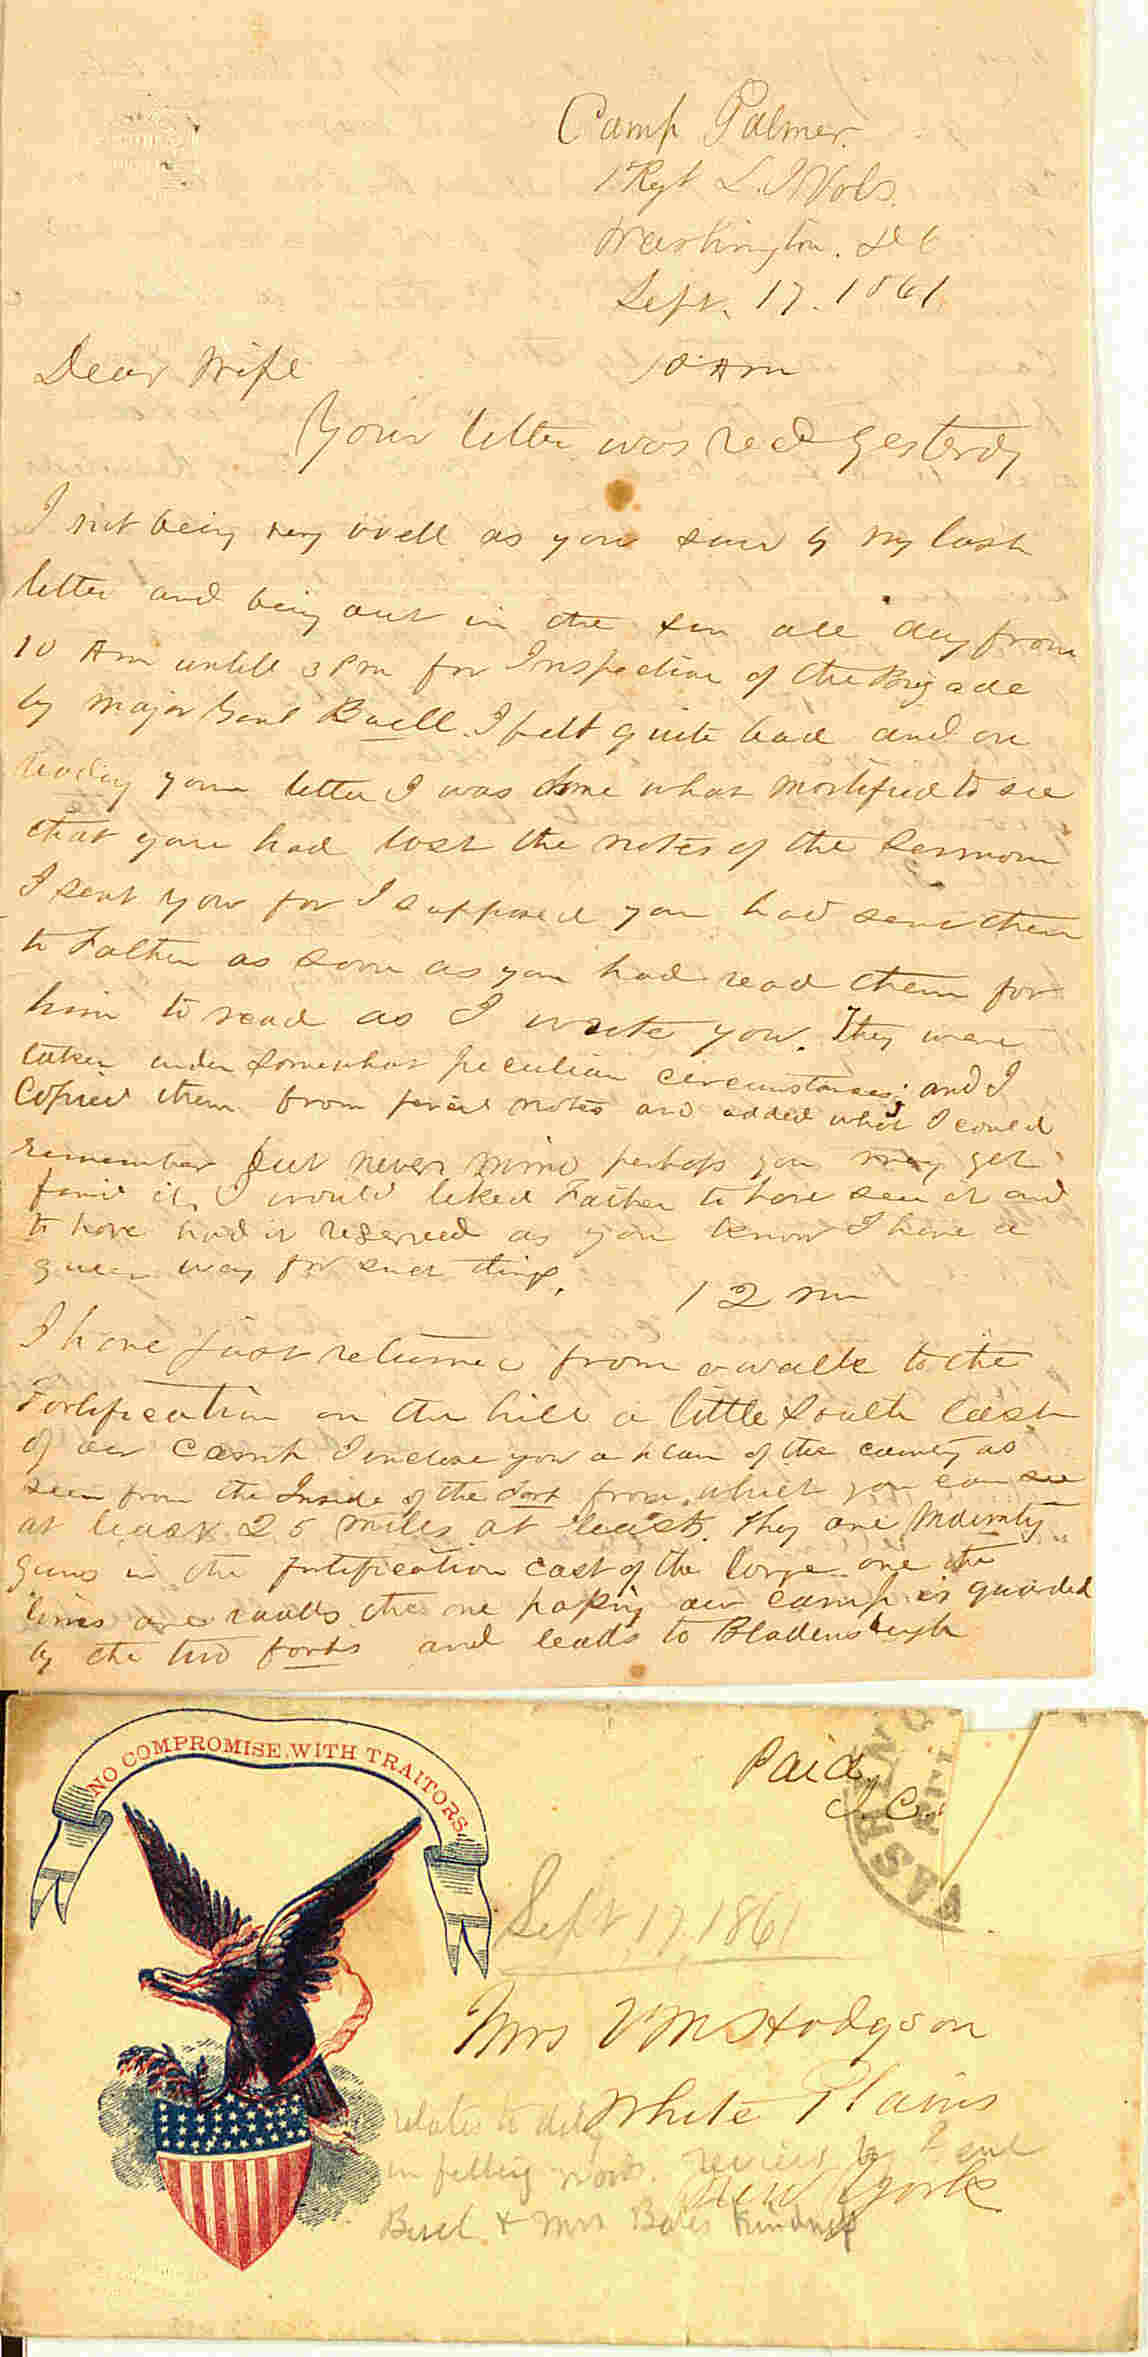 Camp Palmer.
1 Regt L. I Vols.
Washington. D C
Sept. 17. 1861
10 Am
Dear Wife
Your letter was recd yesterdy
I not being very well as you saw by my last
letter and being out in the sun all day from
10 Am untill 3 Pm for Inspection of the Brigade
by Major Genl Buell. I felt quite bad and on
reading your letter I was some what mortified to see
that you had lost the notes of the Sermon
I sent you for I supposed you had sent them
to Father as soon as you had read them for
him to read as I wrote you. They were
taken under somewhat peculiar circumstances; and I
Copied them from pencil notes and added what I could
remember but never mind perhaps you may yet
find it, I would liked Father to have seen it and
to have had it reserved as you know I have a
queer way for such things.
12 m
I have just returned from a walk to the
Fortification on the hill a little South East
of our Camp I inclose you a plan of the county as
seen from the Inside of the Fort from which you can see
at least 25 miles at least. They are
guns in the fortification east of the large one the
lines are roads the one passing our camp is guarded
by the two forts and leads to Bladensburgh
NO COMPROMISE WITH TRAITORS.
Paid
WASHINGTO
Sept 17, 1861
Mrs V M Hodgson
White Plains
New York
relates to
in felling woods. review by Genl
Buel & Mrs Bates Kindness